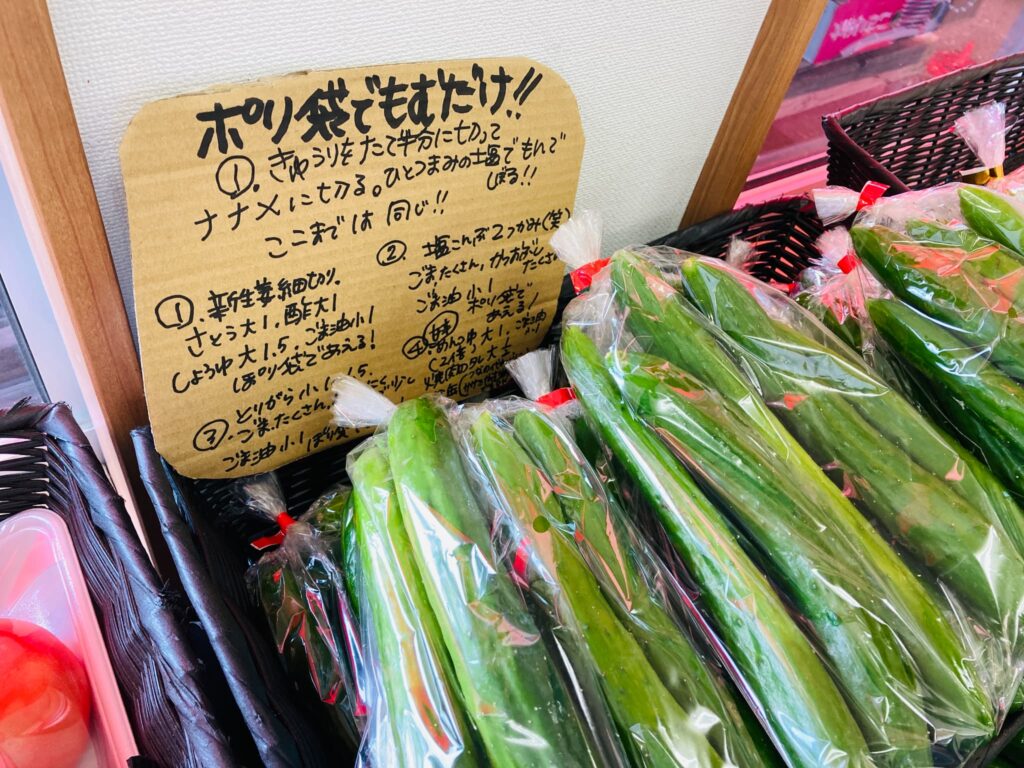 ポリ袋でもむだけ!!
①.きゅうりをたて半分に切って
ナナメに切る。ひとつまみの塩でもんで
しぼる!!
ここまでは同じ!!
①.新生姜細切り。
さとう大1、酢大1
しょうゆ大1.5、ごま油小1
ぽり袋であえる!
②.塩こんぶ2つかみ(笑)
ごまたくさん、かつおぶし
たくさん
ごま油小1
ポリ袋で
あえる!
③.とりがら小1.5
ごまたくさん
ごま油小1 ぽり袋
④.めんつゆ大1、ごま油
小1
(2倍)
焼肉のタレ大1